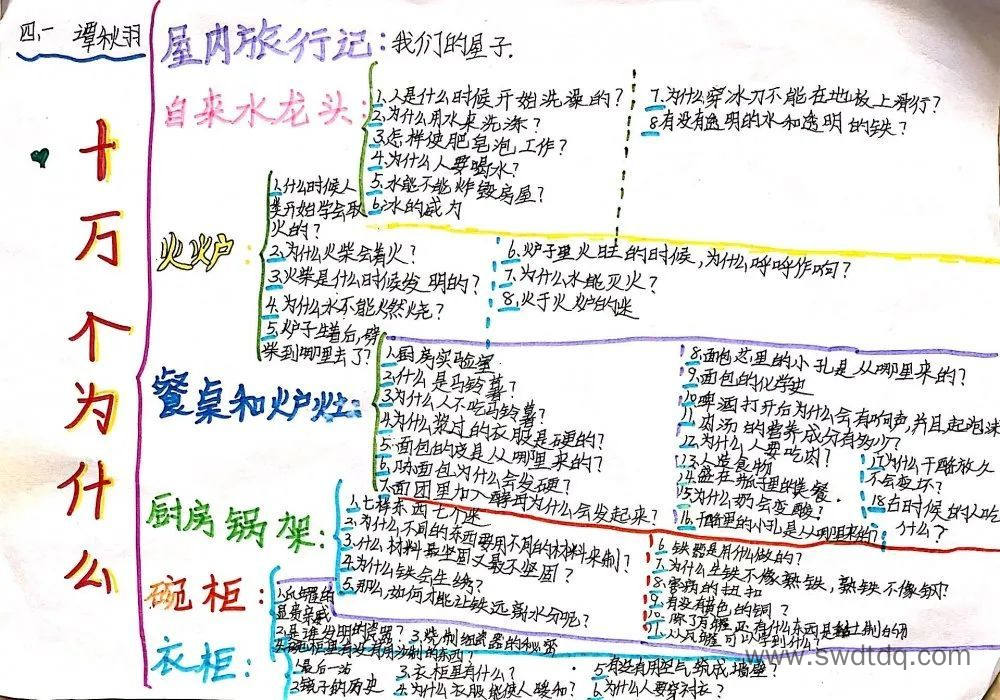 四.一 谭秋羽
十万个为什么
屋内旅行记:我们的屋子.
自来水龙头:
1.人是什么时候开始洗澡的?
2.为什么用水来洗涤?
3.怎样使肥皂泡工作?
4.为什么人要喝水?
5.水能不能炸毁房屋?
6.冰的威力
7.为什么穿冰刀不能在地板上滑行?
8.有没有透明的水和透明的铁?
火炉:
1.什么时候人
类开始学会取
火的?
2.为什么火柴会着火?
3.火柴是什么时候发明的?
4.为什么水不能燃烧?
5.炉子生着后,劈
柴到哪里去了?
6.炉子里火旺的时候,为什么呼呼作响?
7.为什么水能灭火?
8.火于火炉的迷
餐桌和炉灶:
1.厨房实验室
2.什么是马铃薯?
3.为什么人不吃马铃薯?
4.为什么浆过的衣服是硬的?
5.面包的皮是从哪里来的?
6.陈面包为什么会发硬?
7.面团里加入酵母为什么会发起来?
8.面包芯里的小孔是从哪里来的?
9.面包的化学史
10.啤酒打开后为什么会有响声,并且起泡沫
11.肉汤的营养成分有多少?
12.为什么人要吃肉?
13.人造食物
14.盛在瓶子里的美餐.
15.为什么奶会变酸?
16.干酪里的小孔是从哪里来的?
17.为什么干酪放久
不会变坏?
18.古时候的人吃
什么?
厨房锅架:
1.七样东西七个迷
2.为什么不同的东西要用不同的材料来制?
3.什么材料最坚固又最不坚固?
4.为什么铁会生绣?
5.那么,如何才能让铁远离水分呢?
6.铁器是用什么做的?
7.为什么生铁不像熟铁,熟铁不像钢?
8.害病的扭扣
9.有没有黄色的铜?
10.除了瓦罐还有什么东西是黏土制的
11.从瓦罐可以学到什么?
碗柜:
1.瓦罐的
显贵亲戚
2.是谁发明的瓷器?
3.烧制细瓷器的秘密
4.碗柜里有没有用沙制的东西?
衣柜:
1.最后一站
2.镜子的历史
3.衣柜里有什么?
4.为什么衣服能使人暖和?
5.有没有用空气筑成墙壁?
6.为什么人要穿衬衣?
www.swdtdq.com